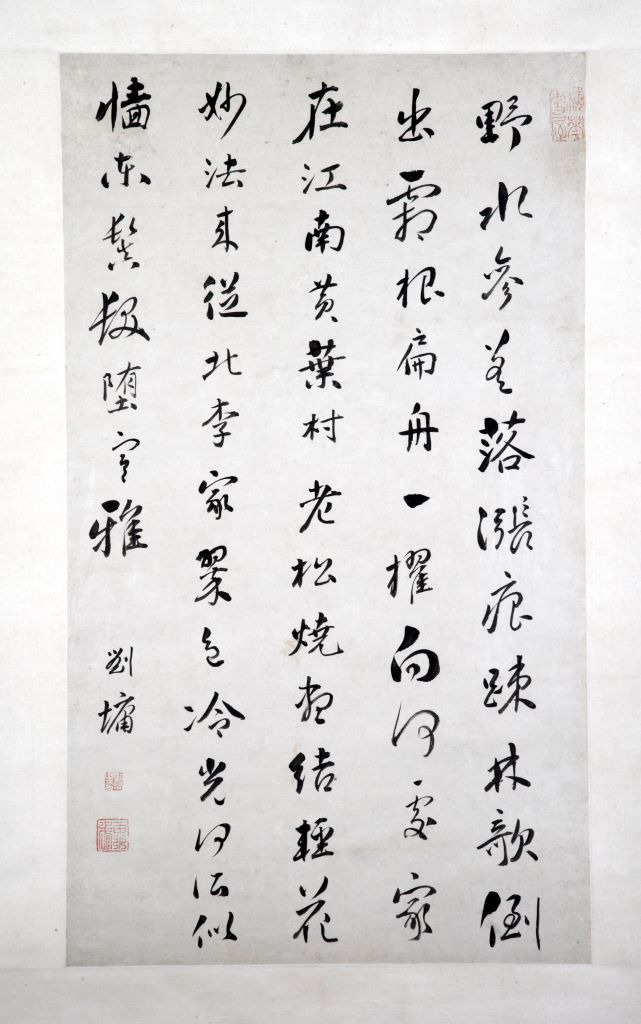 野水參差落漲痕踈林欹倒
出霜根扁舟一櫂向何處家
在江南黄葉村老松燒盡結輕花
妙法來從北李家翠色冷光何所似
墻東鬒髮堕寒雅
劉墉